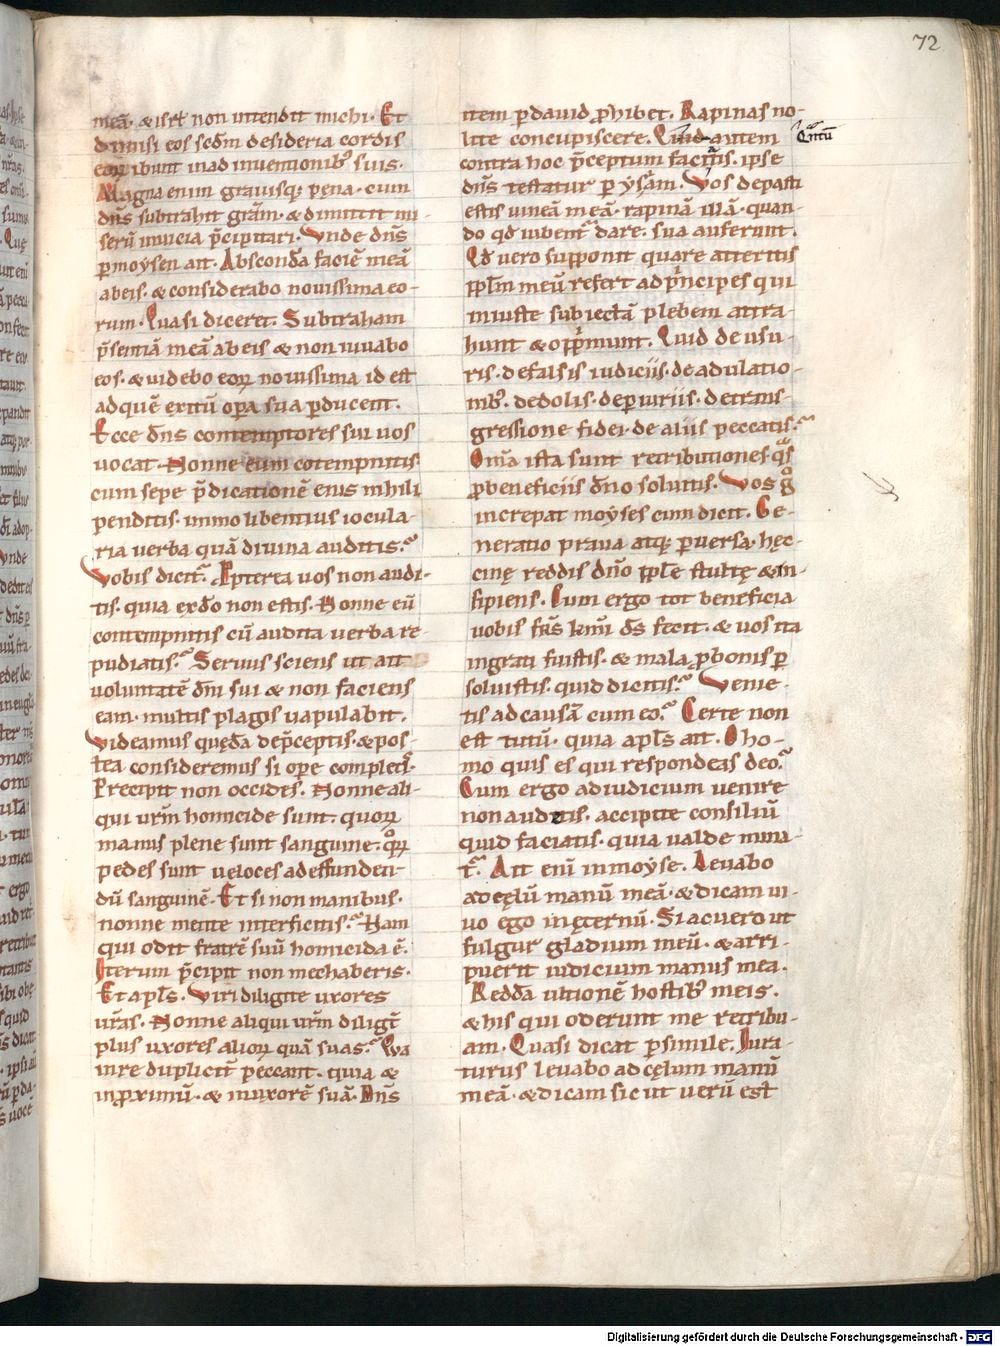 72
meā. & isrł non intendit michi. Et
dimisi eos scđm desideria cordis
eoꝝ ibunt inadinuentionibꝰ suis.
Magna enim grauisqꝫ pena. cum
dn̄s subtrahit grām. & dimittit mi-
serū inuicia p̄cipitari. Vnde dn̄s
ꝑmoysen ait. Abscondā faciē meā
abeis. & considerabo nouissima eo-
rum. Quasi diceret. Subtraham
p̄sentiā meā abeis & non iuuabo
eos. & uidebo eoꝝ nouissima id est
adquē exitū oꝑa sua ꝑducent.
Ecce dn̄s contemptores sui uos
uocat. Nonne eum cōtempnitis
cum sepe p̄dicationē eius nihili
penditis. immo libentius iocula-
ria uerba quā diuina auditis.
Vobis dicit̄. Ꝓpterea uos non audi-
tis. quia exđo non estis. Nonne eū
contempnitis cū audita uerba re-
pudiatis. Seruus sciens ut ait
uoluntatē dn̄i sui & non faciens
eam. multis plagis uapulabit.
Videamus quędā dep̄ceptis. & pos-
tea consideremus si oꝑe completis.
Precipit non occides. Nonne ali-
qui ur̄m homicide sunt. quoꝝ
manus plene sunt sanguine. quoꝝ
pedes sunt ueloces ad effunden-
dū sanguinē. Et si non manibus.
nonne mente interficitis. Nam
qui odit fratrē suū homicida ē.
Iterum p̄cipit non mechaberis.
Et apl̄s. Viri diligite uxores
ur̄as. Nonne aliqui ur̄m diligit̄
plus uxores alioꝝ quā suas. Qua
in re duplicit̄ peccant. quia &
inꝓximū. & inuxorē suā. Dn̄s
item ꝑdauid ꝓhibet. Rapinas no-
lite concupiscere. Quid autem
Quntū
contra hoc p̄ceptum faciatis. ipse
dn̄s testatur ꝑ ysaīam. Vos depasti
estis uineā meā. rapinā illā. quan-
do qđ iubent̄ dare. sua auferunt.
Qđ uero supponit quare atteritis
ppl̄m meū refert ad p̄ncipes qui
iniuste subiectā plebem attra-
hunt & opp̄munt. Quid de usu-
ris. defalsis iudiciis. de adulatio-
nibꝰ. dedolis. deꝑiuriis. detrans-
gressione fidei. de aliis peccatis.
Om̄a ista sunt retributiones. qͣs
ꝓbeneficiis dn̄o soluitis. Vos gͦ
increpat moyses cum dicit. Ge-
neratio praua atqꝫ ꝑuersa. hęc-
cinę reddis dn̄o pp̄le stultę & in-
sipiens. Cum ergo tot beneficia
uobis frs̄ km̄i dš fecit. & uos ita
ingrati fuistis. & mala ꝓbonis ꝑ
soluistis. quid dicitis. Venie-
tis ad causā cum eo. Certe non
est tutū. quia apl̄s ait. O ho-
mo quis es qui respondeas deo.
Cum ergo ad iudicium uenire
non audetis. accipite consiliū
quid faciatis. quia ualde mina-
t̄. Ait enī inmoyse. Leuabo
ad cęlū manū meā. & dicam ui-
uo ego in ęternū. Si acuero ut
fulgur gladium meū. & arri-
puerit iudicium manus mea.
Reddā ultionē hostibꝰ meis.
& his qui oderunt me retribu-
am. Quasi dicat ꝑsimile. Iura-
turus leuabo ad cęlum manū
meā. & dicam sicut uerū est
Digitalisierung gefördert durch die Deutsche Forschungsgemeinschaft - DFG